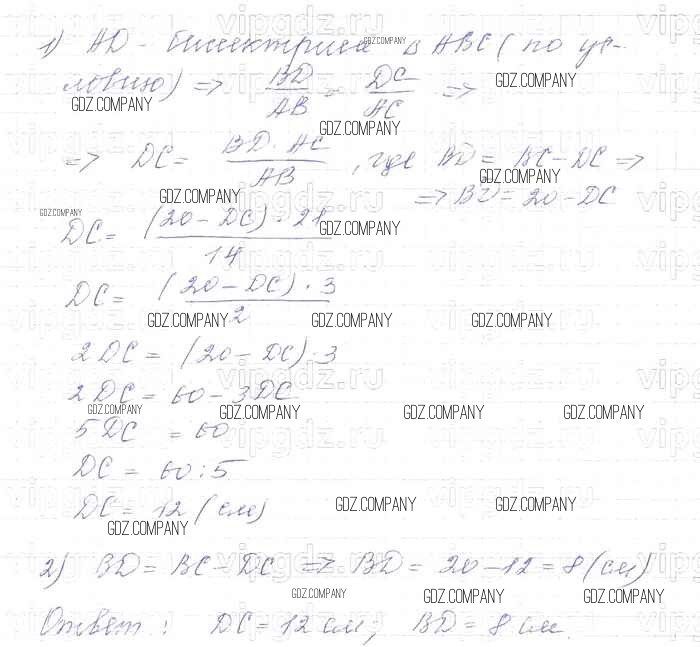 1) AD - биссектриса Δ ABC (по ус-
ловию) => BD/AB = DC/AC =>
=> DC = BD · AC / AB, где BD = BC - DC =>
=> BD = 20 - DC
DC = (20 - DC) · 21 / 14
DC = (20 - DC) · 3 / 2
2DC = (20 - DC) · 3
2DC = 60 - 3DC
5DC = 60
DC = 60 : 5
DC = 12 (см)
2) BD = BC - DC => BD = 20 - 12 = 8 (см)
Ответ: DC = 12 см; BD = 8 см.
GDZ.COMPANY
vipgdz.ru